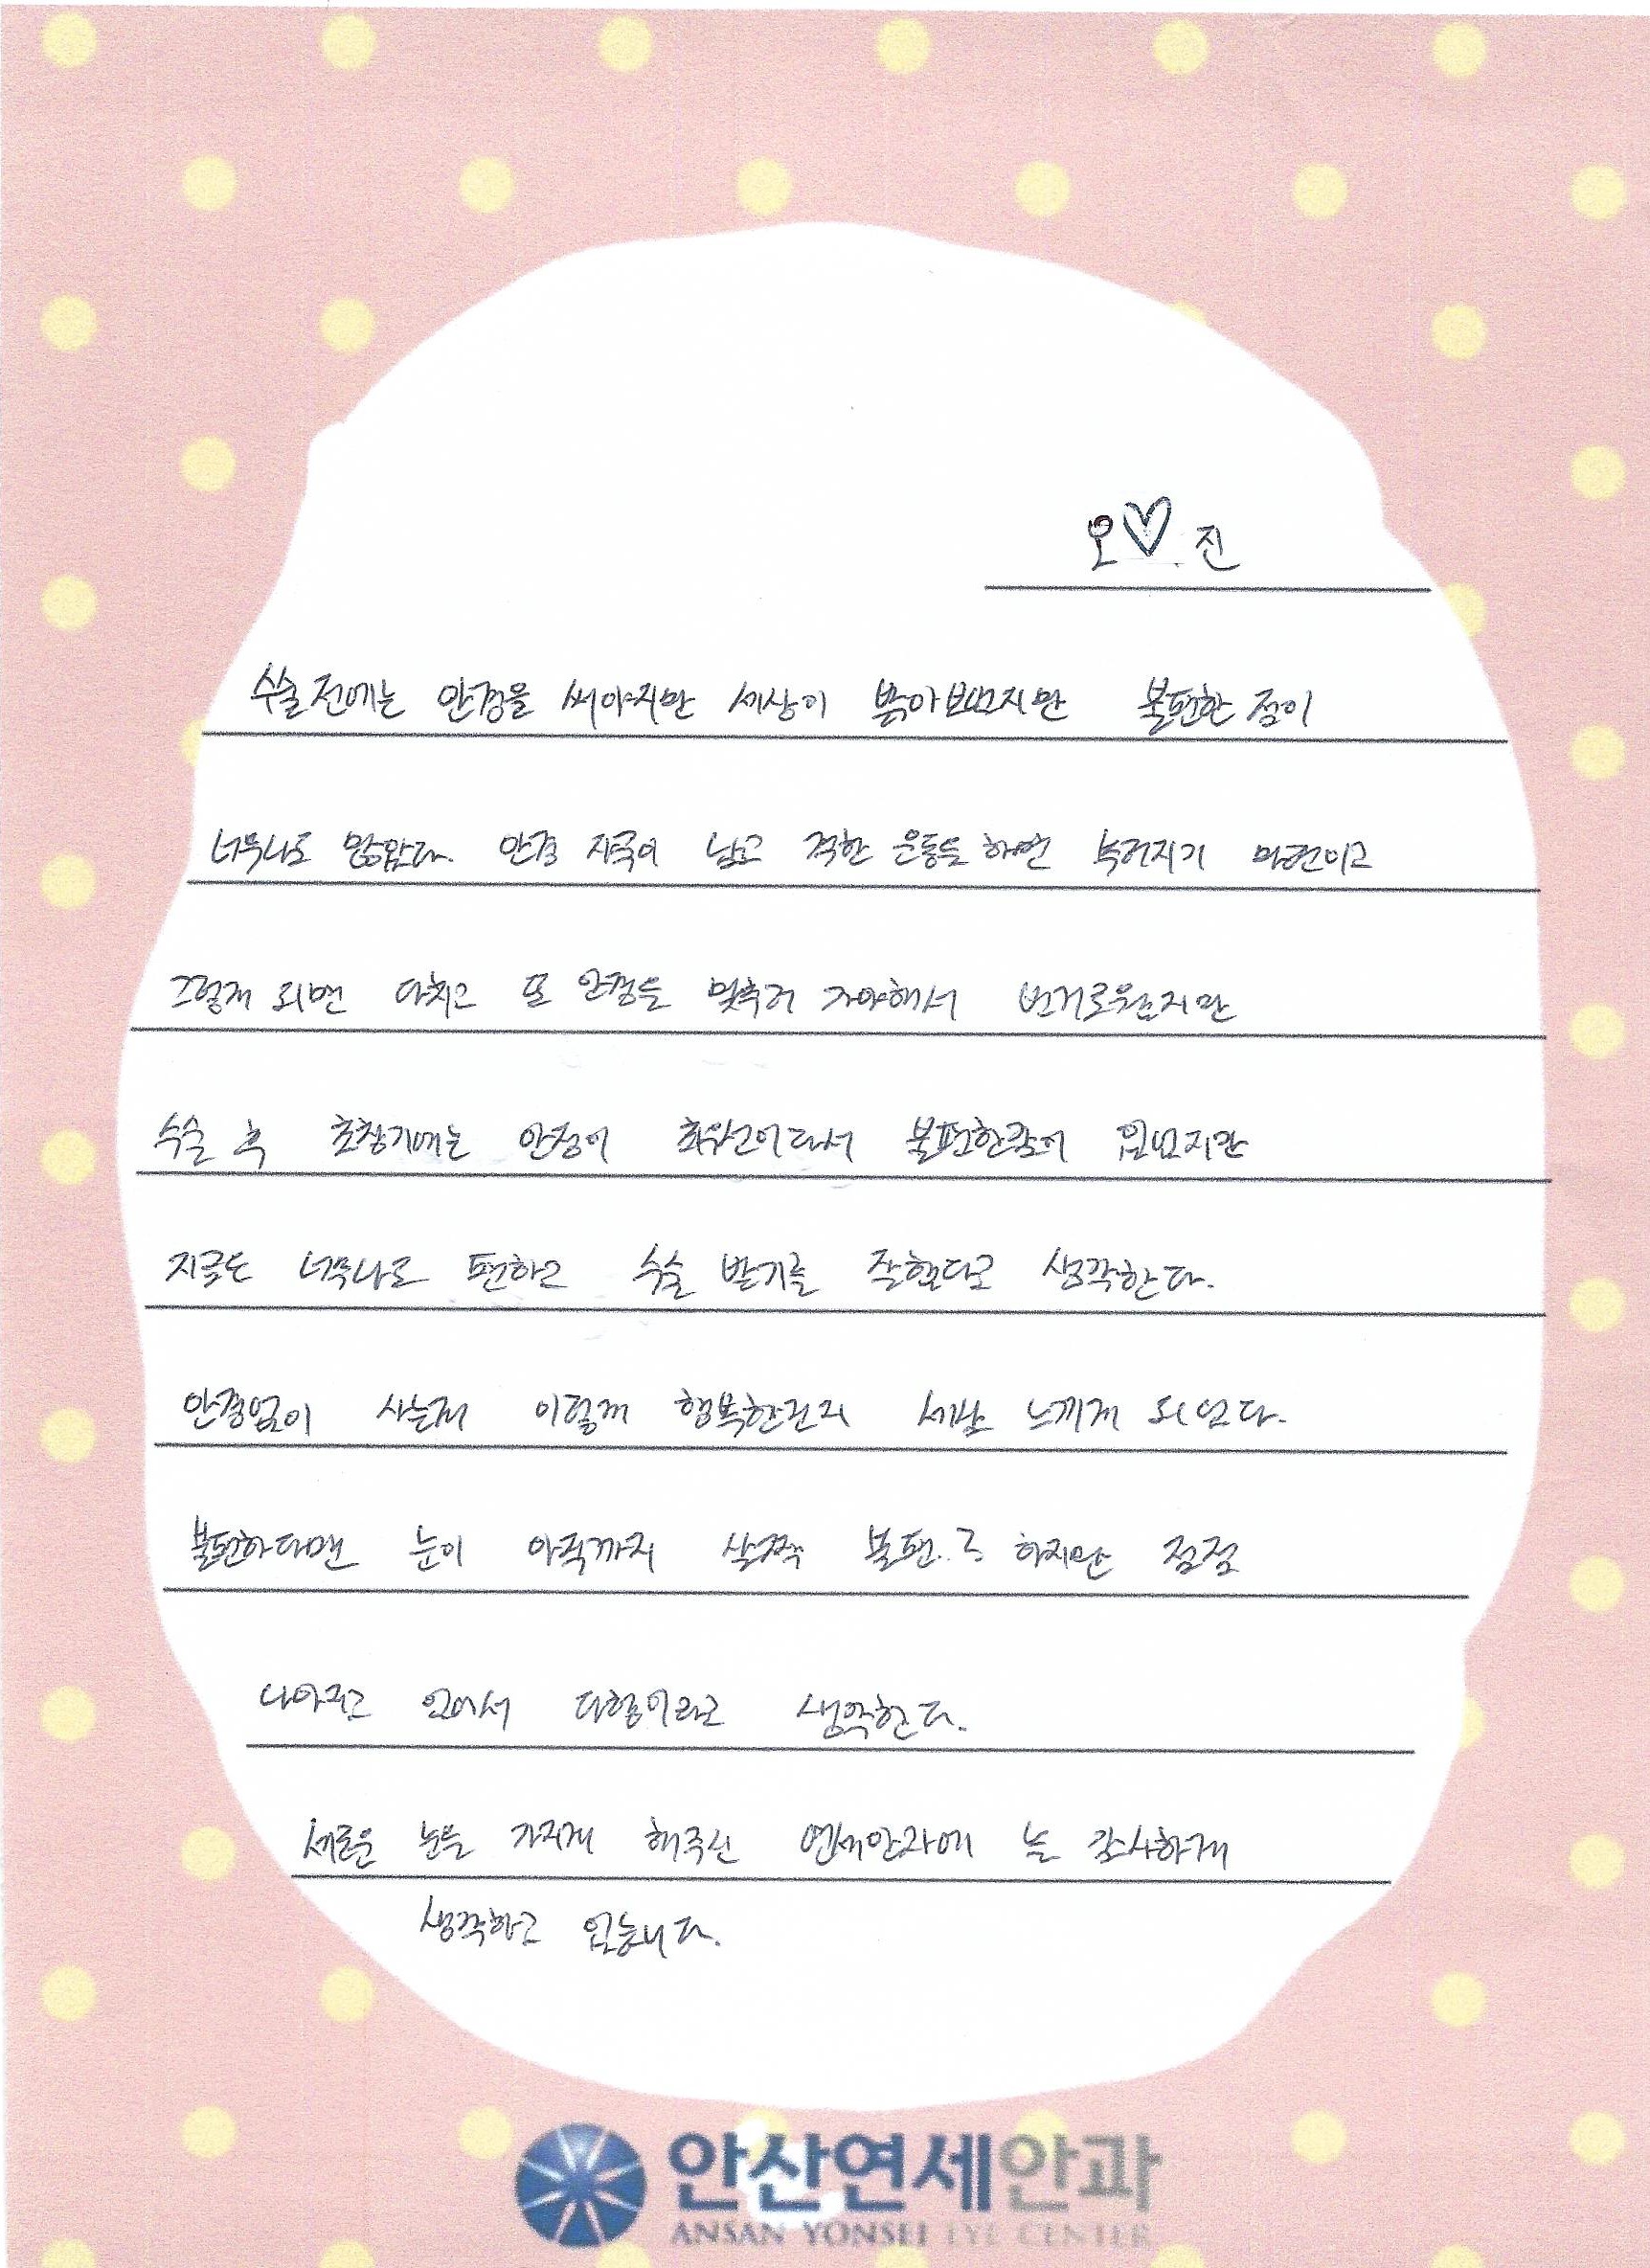 오♡진
수술전에는 안경을 써야지만 세상이 밝아보였지만 불편한 점이
너무나도 많았다. 안경 자국이 남고 격한 운동을 하면 부러지기 마련이고
그렇게 되면 다치고 또 안경을 맞추러 가야해서 번거로웠지만
수술 후 초창기에는 안정이 최우선이라서 불편한감이 있었지만
지금은 너무나도 편하고 수술 받기를 잘했다고 생각한다.
안경없이 사는게 이렇게 행복한건지 새삼 느끼게 되었다.
불편하다면 눈이 아직까지 살짝 불편.. 하지만 점점
나아지고 있어서 다행이라고 생각한다.
새로운 눈을 가지게 해주신 연세안과에 늘 감사하게
생각하고 있습니다.
안산연세안과
ANSAN YONSEI EYE CENTER